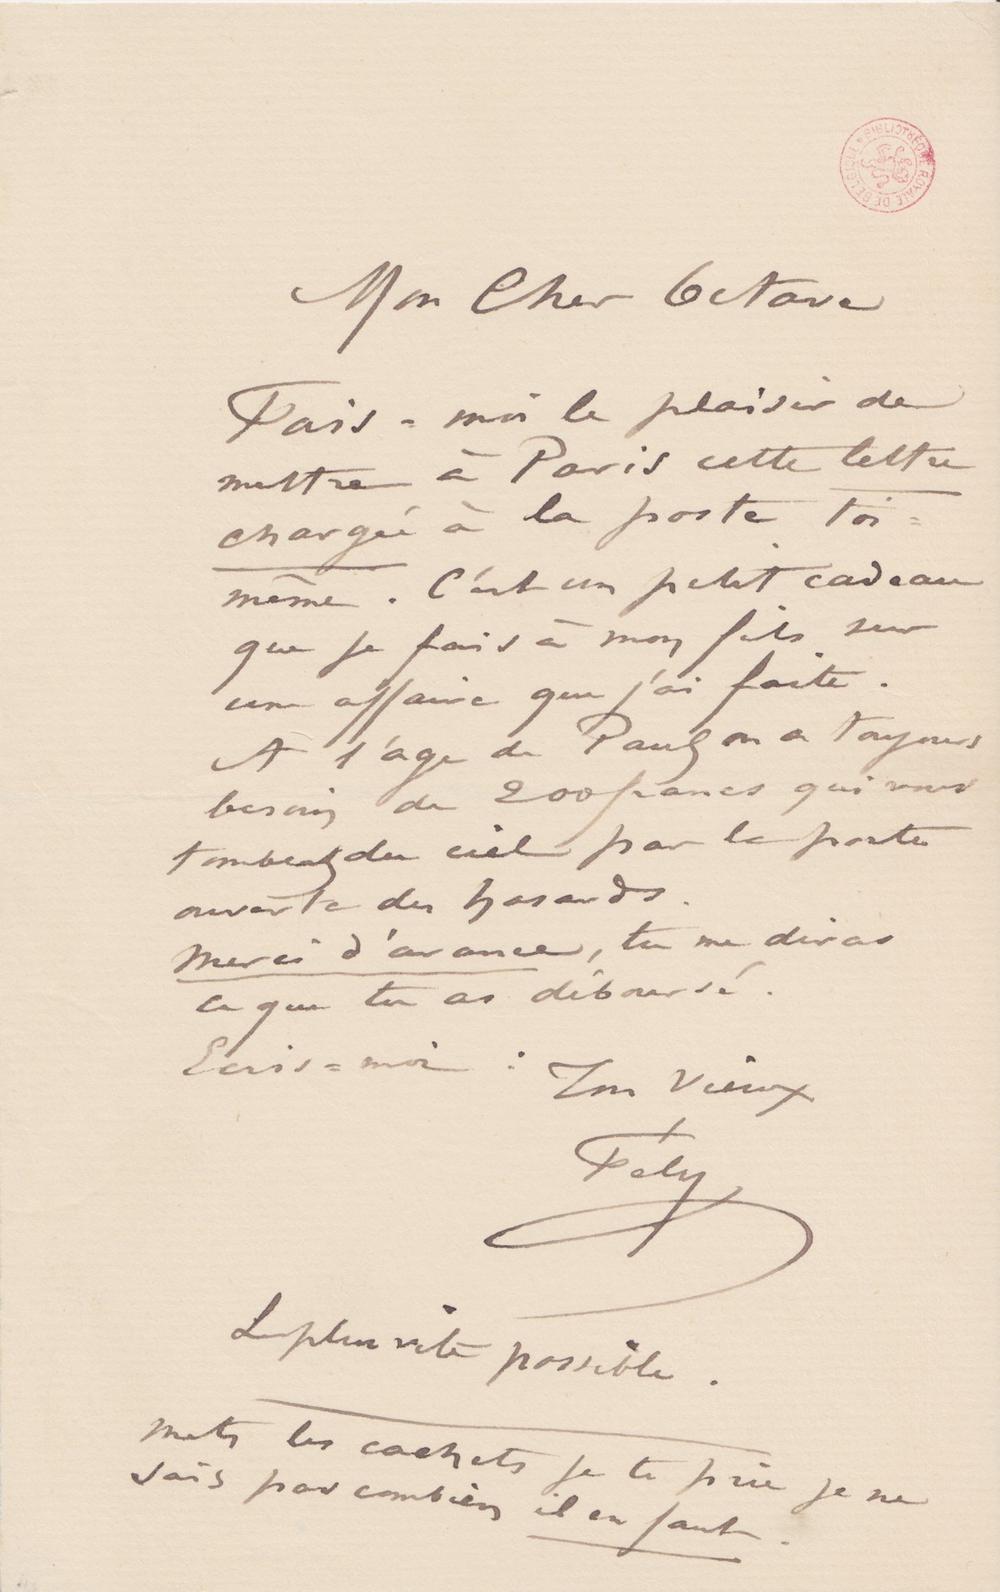 BIBLIOTHÈQUE ROYALE DE BELGIQUE
Mon Cher Octave
Fais=moi le plaisir de
mettre à Paris cette lettre
chargée à la poste toi=
même. C'est un petit cadeau
que je fais à mon fils sur
une affaire que j'ai faite.
A l'age de Paul on a toujours
besoin de 200 francs qui vous
tombent du ciel par la porte
ouverte des hasards.
Merci d'avance, tu me diras
ce que tu as déboursé.
Ecris=moi :
Ton Vieux
Fély
Le plus vite possible.
mets les cachets je te prie je ne
sais pas combien il en faut.